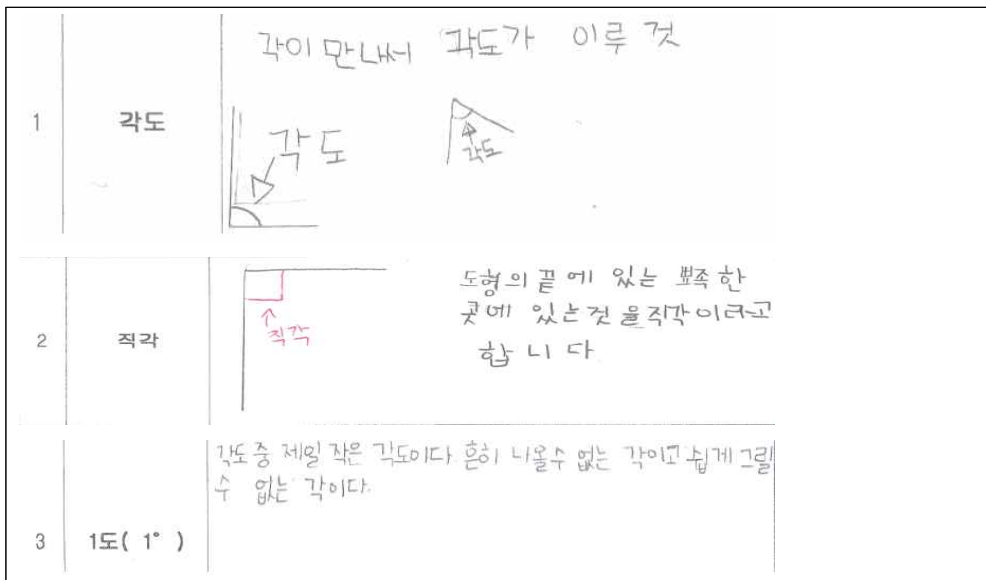 각이 만나서 각도가 이루 것
1
각도
각도
각도
2
직각
직각
도형의 끝에 있는 뾰족 한
곳에 있는것 을 직각이라고
합니다
각도 중 제일 작은 각도이다. 흔히 나올수 없는 각이고 쉽게 그릴
수 없는 각이다.
3
1도( 1° )